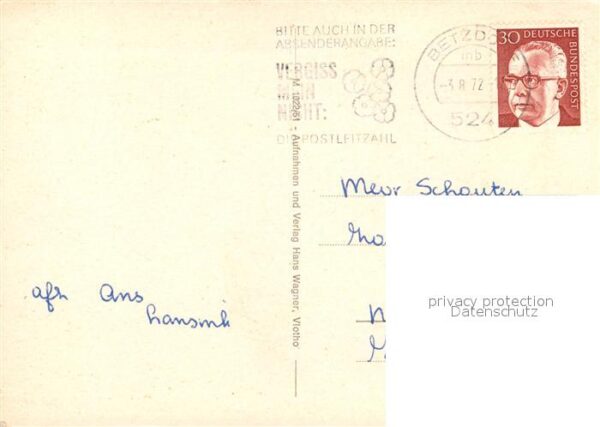 BITTE AUCH IN DER
ABSENDERANGABE:
VERGISS
MEIN
NICHT:
DIE POSTLEITZAHL
BETZDO
mb
-3.8.72
524
30 DEUTSCHE
BUNDESPOST
M 1022/61 - Aufnahmen und Verlag Hans Wagner, Vlotho
Mevr Schouten
afz Ans
privacy protection
Datenschutz